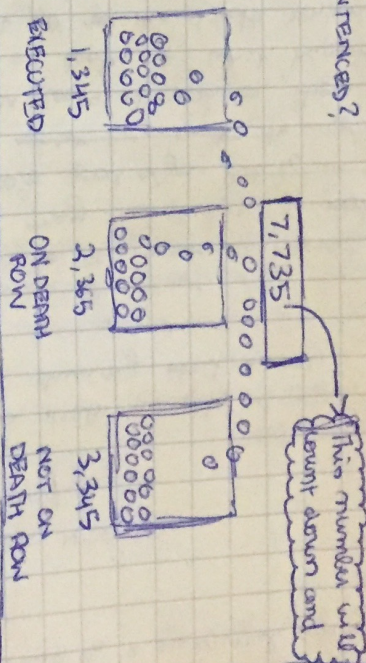 NTENCED?
7,735
This number will
count down and
1,345
EXECUTED
2,365
ON DEATH
ROW
3,345
NOT ON
DEATH ROW